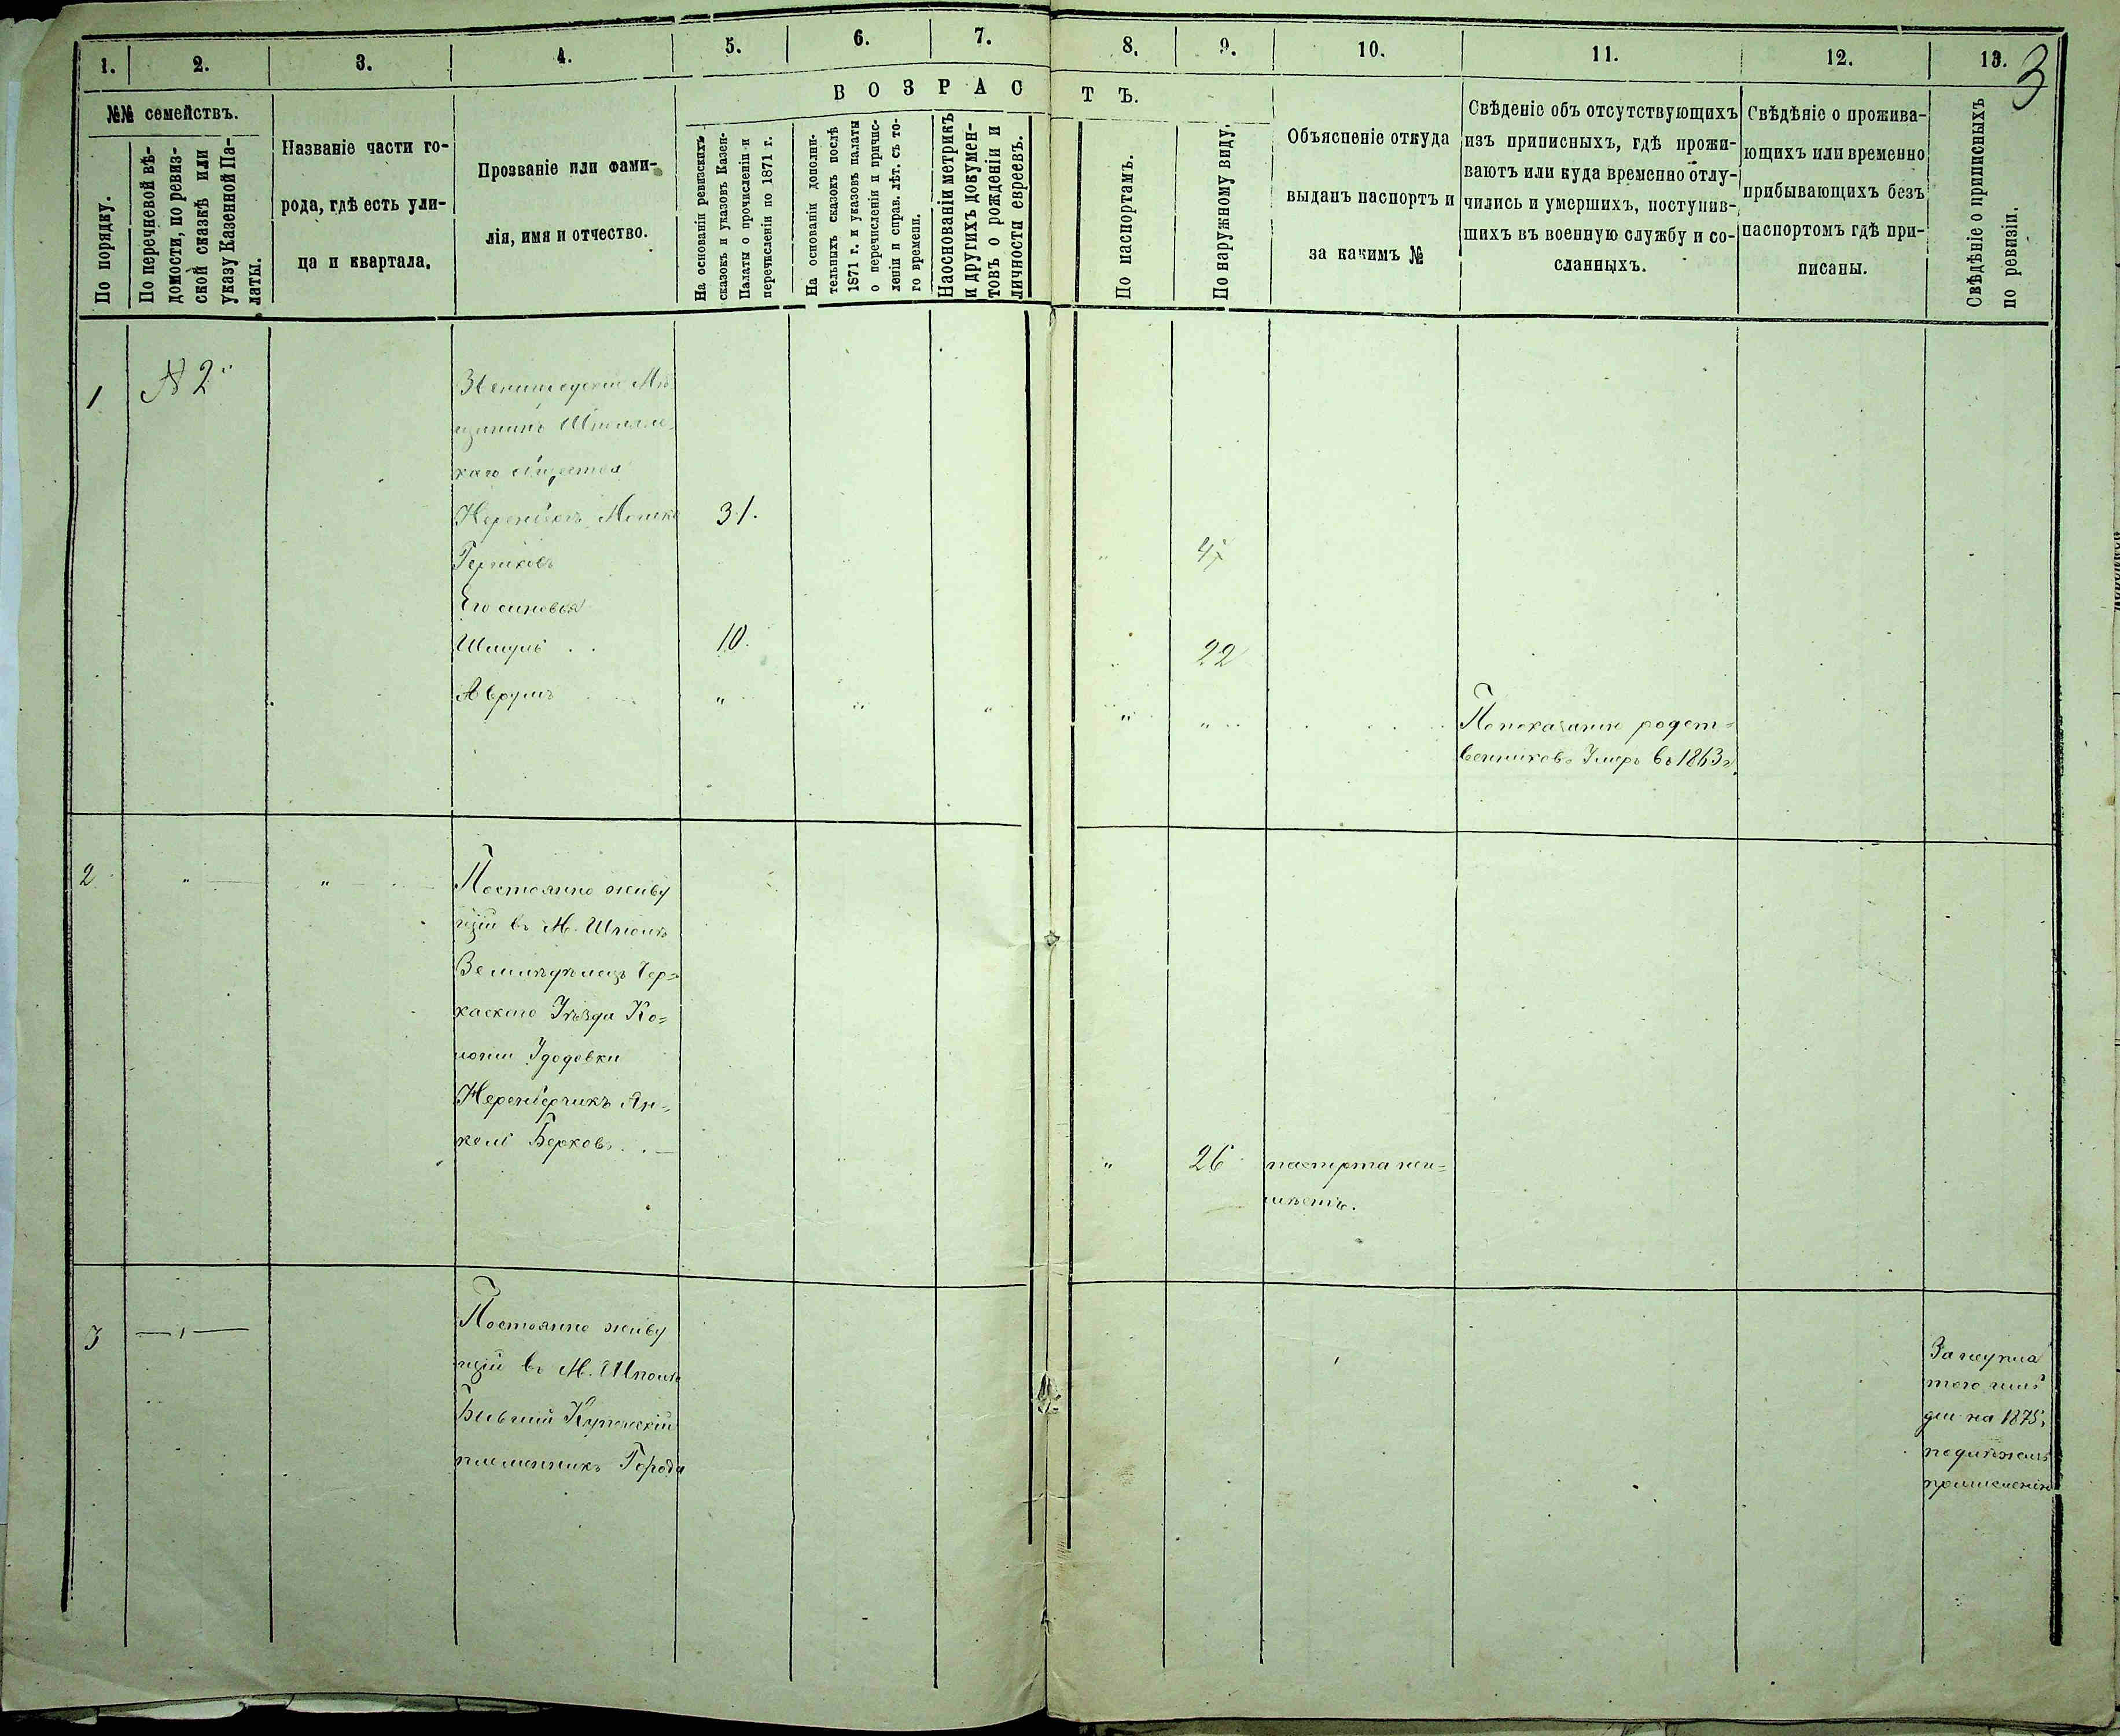 1. 2. 3. 4. 5. 6. 7. 8. 9. 10. 11. 12. 13.
3
№№ семействъ.
По порядку.
По перечневой вѣ-
домости, по ревиз-
ской сказкѣ или
указу Казенной Па-
латы.
Названіе части го-
рода, гдѣ есть ули-
ца и квартала.
Прозваніе или фами-
лія, имя и отчество.
ВОЗРАСТЪ.
На основаніи ревизскихъ
сказокъ и указовъ Казен-
Палаты о прочисленіи и
перечисленіи по 1871 г.
На основаніи дополни-
тельныхъ сказокъ послѣ
1871 г. и указовъ палаты
о перечисленіи и причис-
леніи и справ. лѣт. съ то-
го времени.
Наоснованіи метрикъ
и другихъ докумен-
товъ о рожденіи и
личности евреевъ.
По паспортамъ.
По наружному виду.
Объясненіе откуда
выданъ паспортъ и
за какимъ №
Свѣденіе объ отсутствующихъ
изъ приписныхъ, гдѣ прожи-
ваютъ или куда временно отлу-
чились и умершихъ, поступив-
шихъ въ военную службу и со-
сланныхъ.
Свѣдѣніе о прожива-
ющихъ или временно
прибывающихъ безъ
паспортомъ гдѣ при-
писаны.
Свѣдѣніе о приписныхъ
по ревизіи.
1 № 2
Звенигородскій Мѣ
щанинъ
каго общества
Мошко 31.
47
Его сыновья
Шмуль 10. 22
Аврумъ " " " " "
По показанію родст=
венниковъ Умеръ въ 1863 г.
2 " "
Постоянно живу
щій въ М. Шполѣ
Земледѣлецъ Чер=
каскаго Уѣзда Ко=
лоніи
Ян=
кель Берковъ " 26 паспорта неи=
мѣетъ.
3
Постоянно живу
щій въ М. Шполѣ
Бывшій Купеческій
племянникъ Города
того
на 1875
подлежитъ